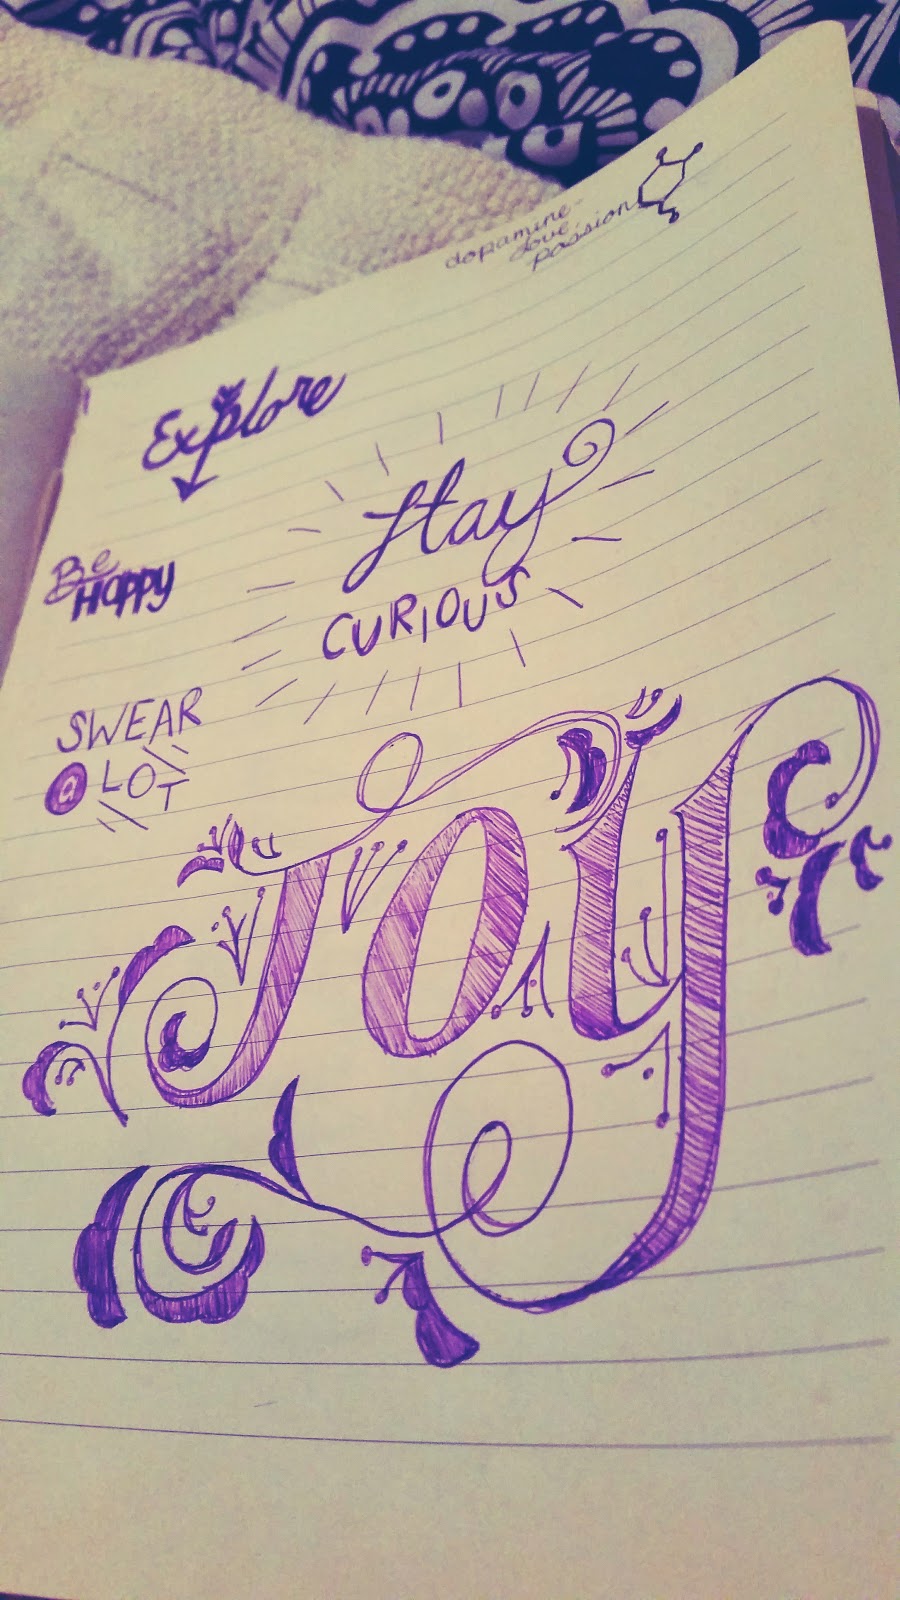 dopamine-
love,
passion
Explore
Stay
CURIOUS
Be
Happy
SWEAR
a LOT
Joy